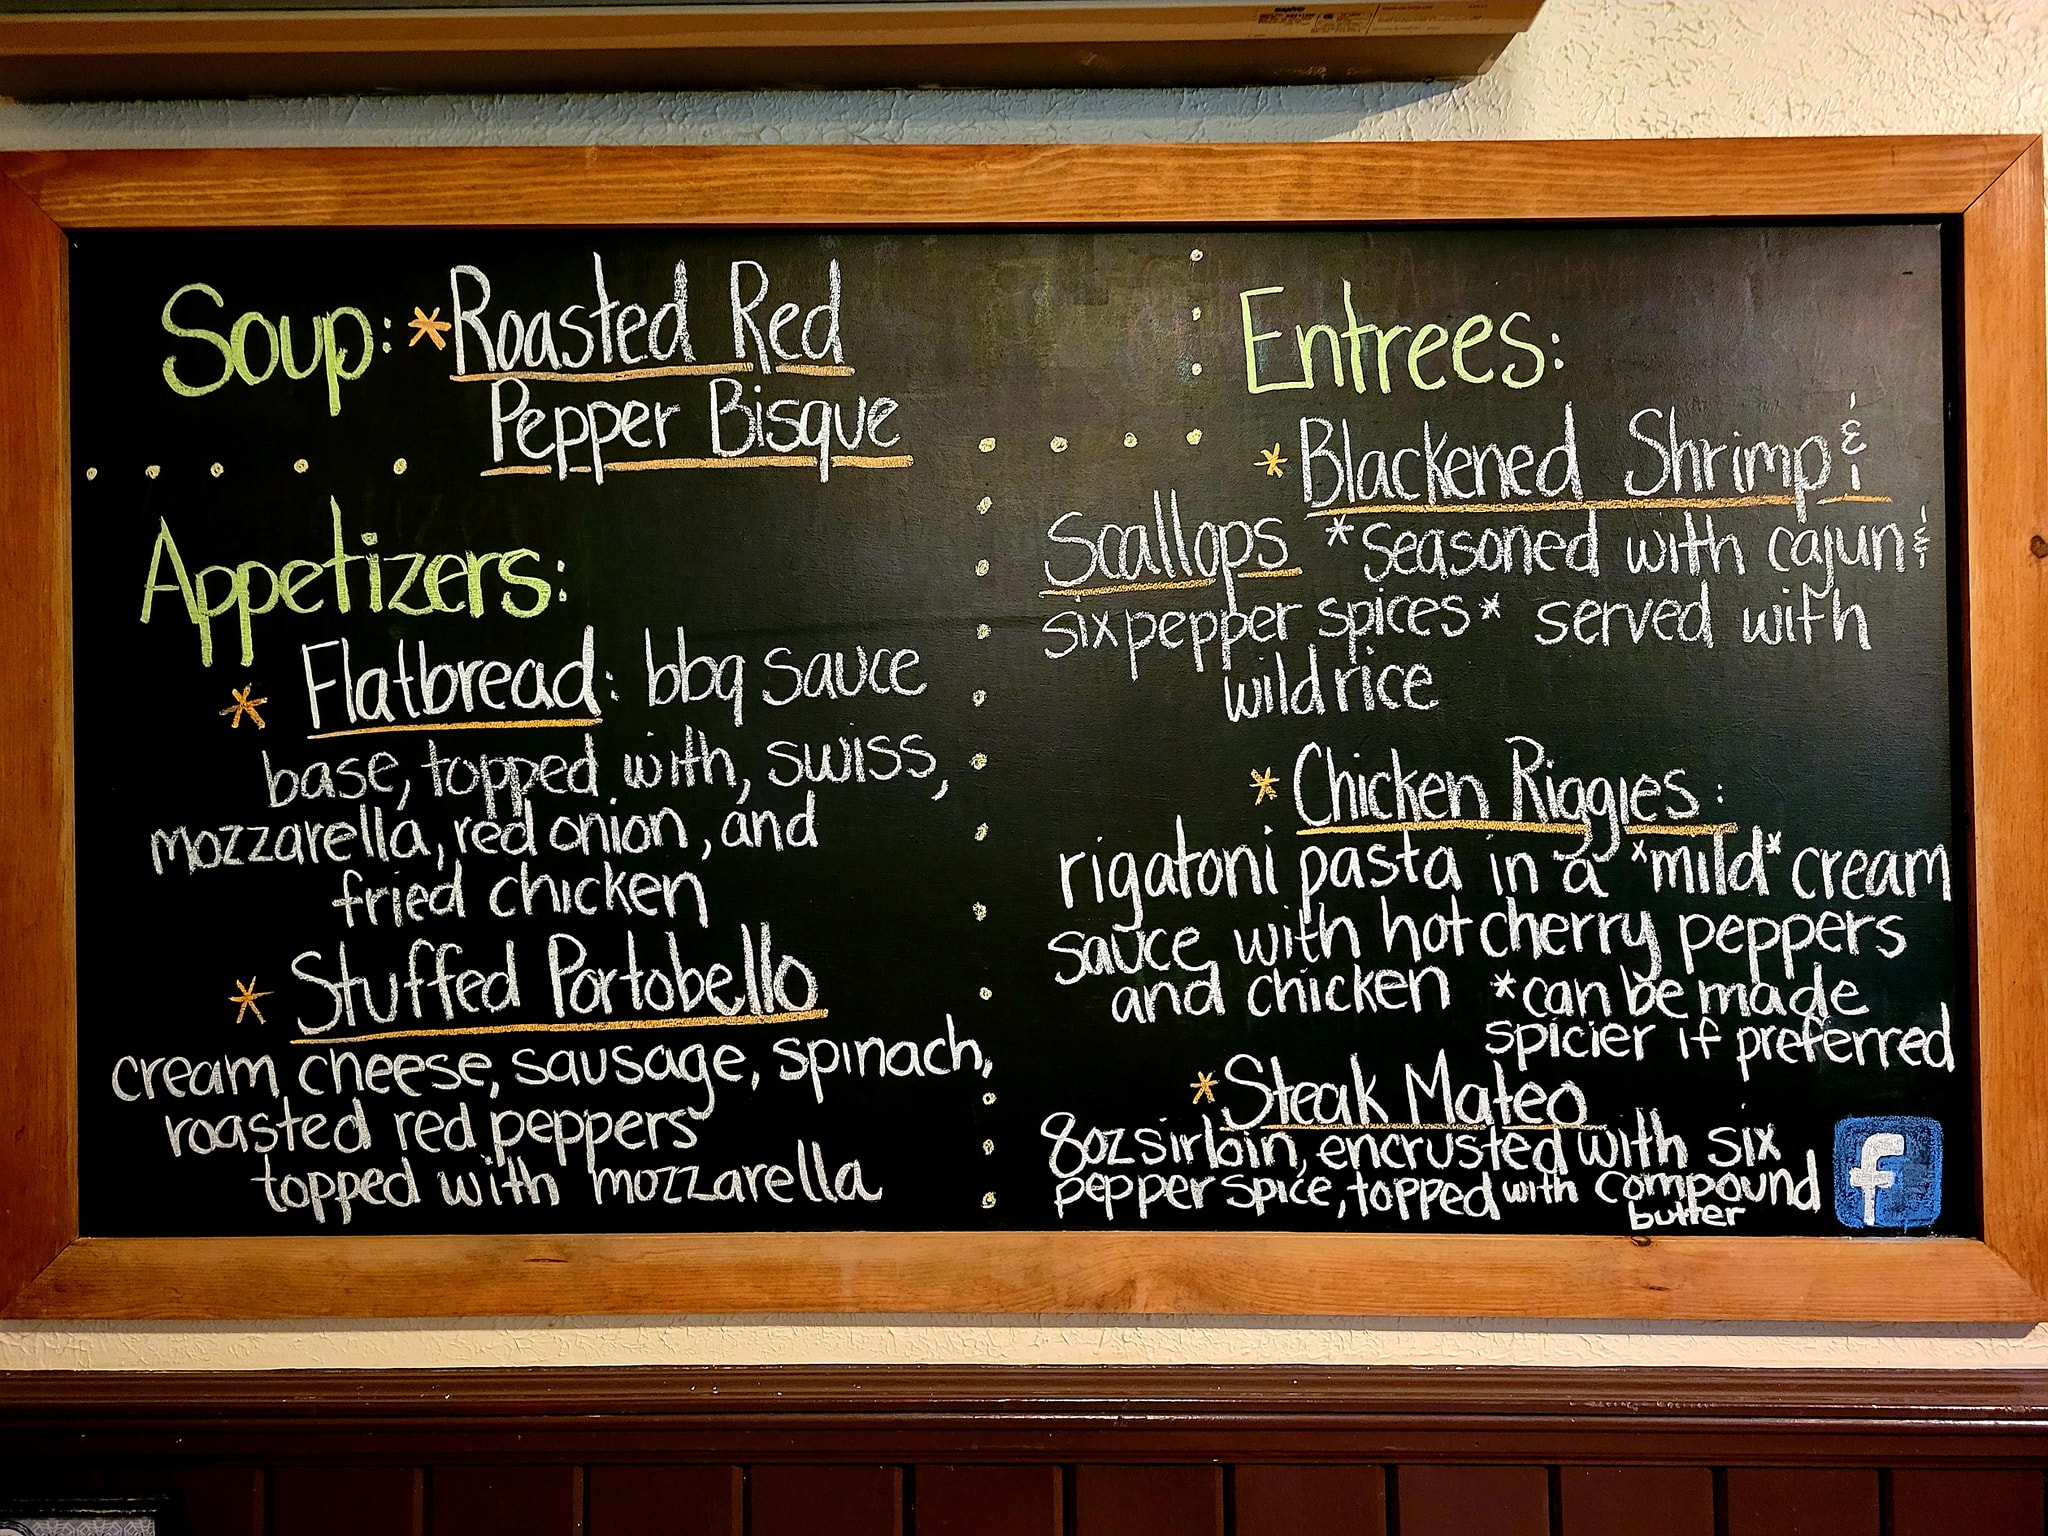 SANYO
Soup: *Roasted Red
Pepper Bisque
Appetizers:
* Flatbread: bbq sauce
base, topped with, swiss,
mozzarella, red onion, and
fried chicken
* Stuffed Portobello
cream cheese, sausage, spinach,
roasted red peppers
topped with mozzarella
Entrees:
* Blackened Shrimp &
Scallops *seasoned with cajun &
six pepper spices* served with
wild rice
* Chicken Riggies:
rigatoni pasta in a *mild* cream
sauce with hot cherry peppers
and chicken *can be made
spicier if preferred
* Steak Mateo
8oz sirloin, encrusted with six
pepper spice, topped with compound
butter
f